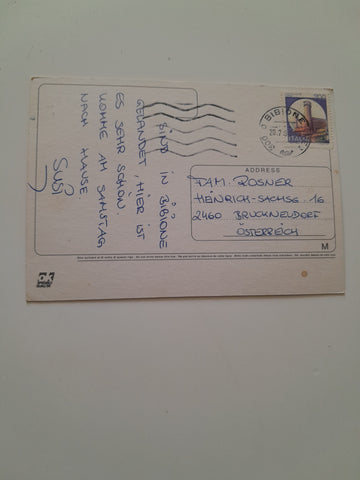 SIND IN BIBIONE
GELANDET, HIER IST
ES SEHR SCHÖN.
KOMME AM SAMSTAG
NACH HAUSE
SUSI
ITALIA
BIBIONE
ADDRESS
FAM. ROSNER
HEINRICH-SACHSE. 16
2460 BRUCKNEUDORF
ÖSTERREICH
M
OK